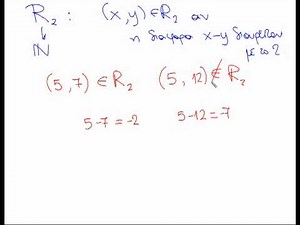 R₂ : (x,y) ∈ R₂ αν
↓
ℕ η διαφορά x-y διαιρείται
με το 2
(5,7) ∈ R₂ (5,12) ∉ R₂
5-7=-2 5-12=-7